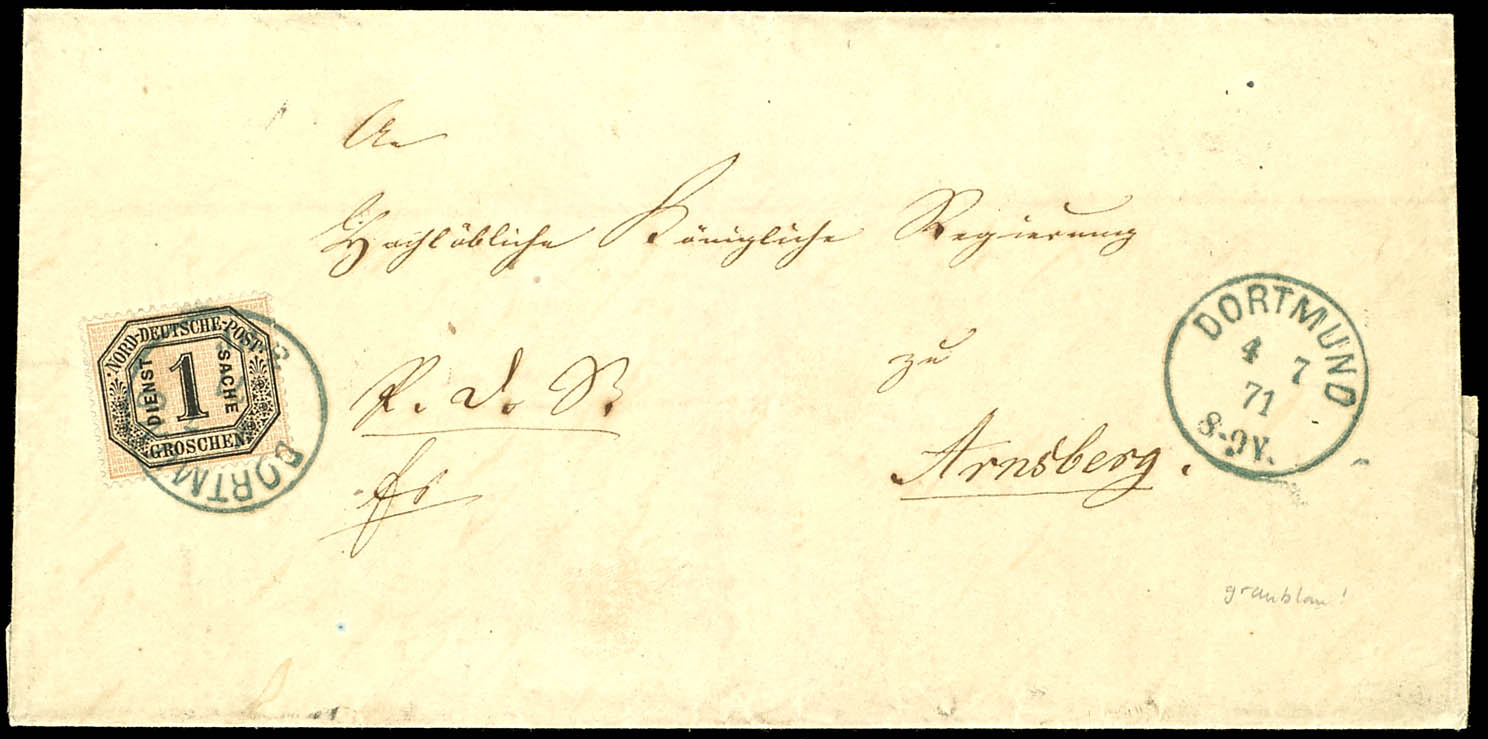 An
Hochlöbliche Königliche Regierung
zu
Arnsberg.
P. d. S.
fr
NORD-DEUTSCHE-POST
DIENST 1 SACHE
GROSCHEN
DORTMUND
4 7
71
8-9V.
graublau!